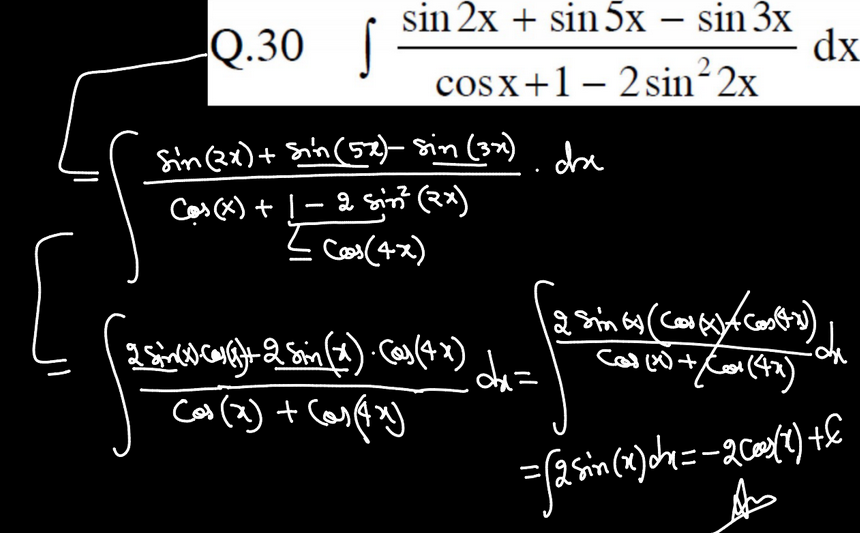 Q.30 ∫ (sin 2x + sin 5x − sin 3x)/(cos x+1 − 2 sin² 2x) dx
= ∫ (Sin(2x) + Sin(5x) − Sin(3x))/(Cos(x) + 1 − 2 Sin²(2x)) . dx
= Cos(4x)
= ∫ (2 Sin(x).Cos(x) + 2 Sin(x) . Cos(4x))/(Cos(x) + Cos(4x)) dx = ∫ (2 Sin(x) (Cos(x) + Cos(4x)))/(Cos(x) + Cos(4x)) dx
= ∫ 2 Sin(x) dx = −2 Cos(x) + C
Ans